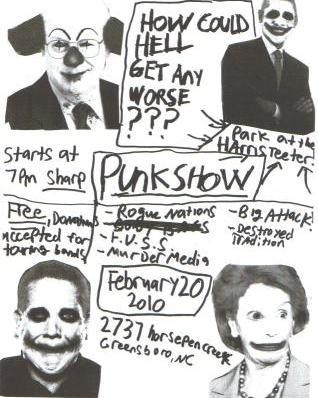 HOW COULD
HELL
GET ANY
WORSE
???
Park at the
Harris Teeter!
Starts at
7PM Sharp
PUNK SHOW
Free, Donations
accepted for
touring bands
- Rogue Nations
- F.V.S.S.
- Murder Media
- Big Attack!
- Destroyed
Tradition
February 20
2010
2737 horsepen creek
Greensboro, NC